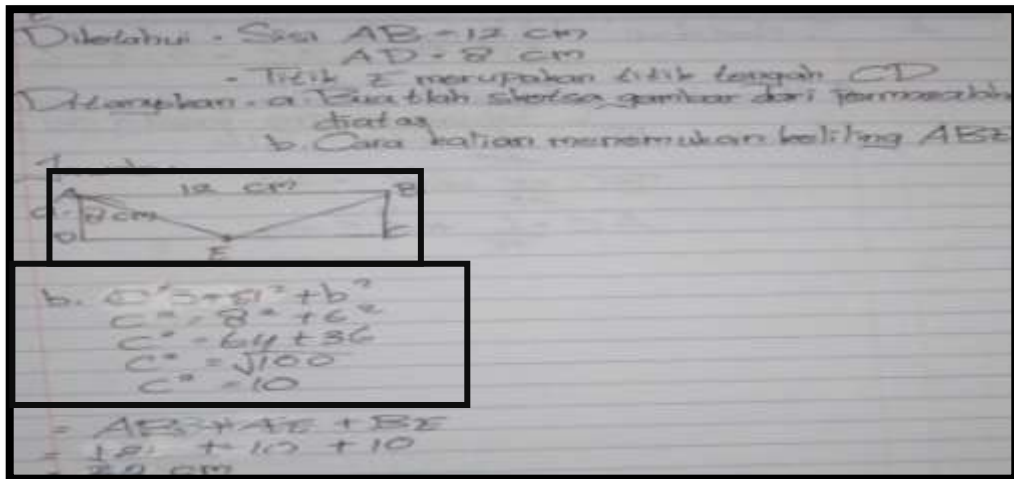 Diketahui - Sisi AB = 12 cm
AD = 8 cm
- Titik E merupakan titik tengah CD
Ditanyakan - a. Buatlah sketsa gambar dari permasalah
diatas
b. Cara kalian menemukan keliling ABE
Jawab
A 12 cm B
a. 8 cm
D E C
b. C² = a² + b²
C² = 8² + 6²
C² = 64 + 36
C² = √100
C² = 10
= AB + AE + BE
= 12 + 10 + 10
= 32 cm